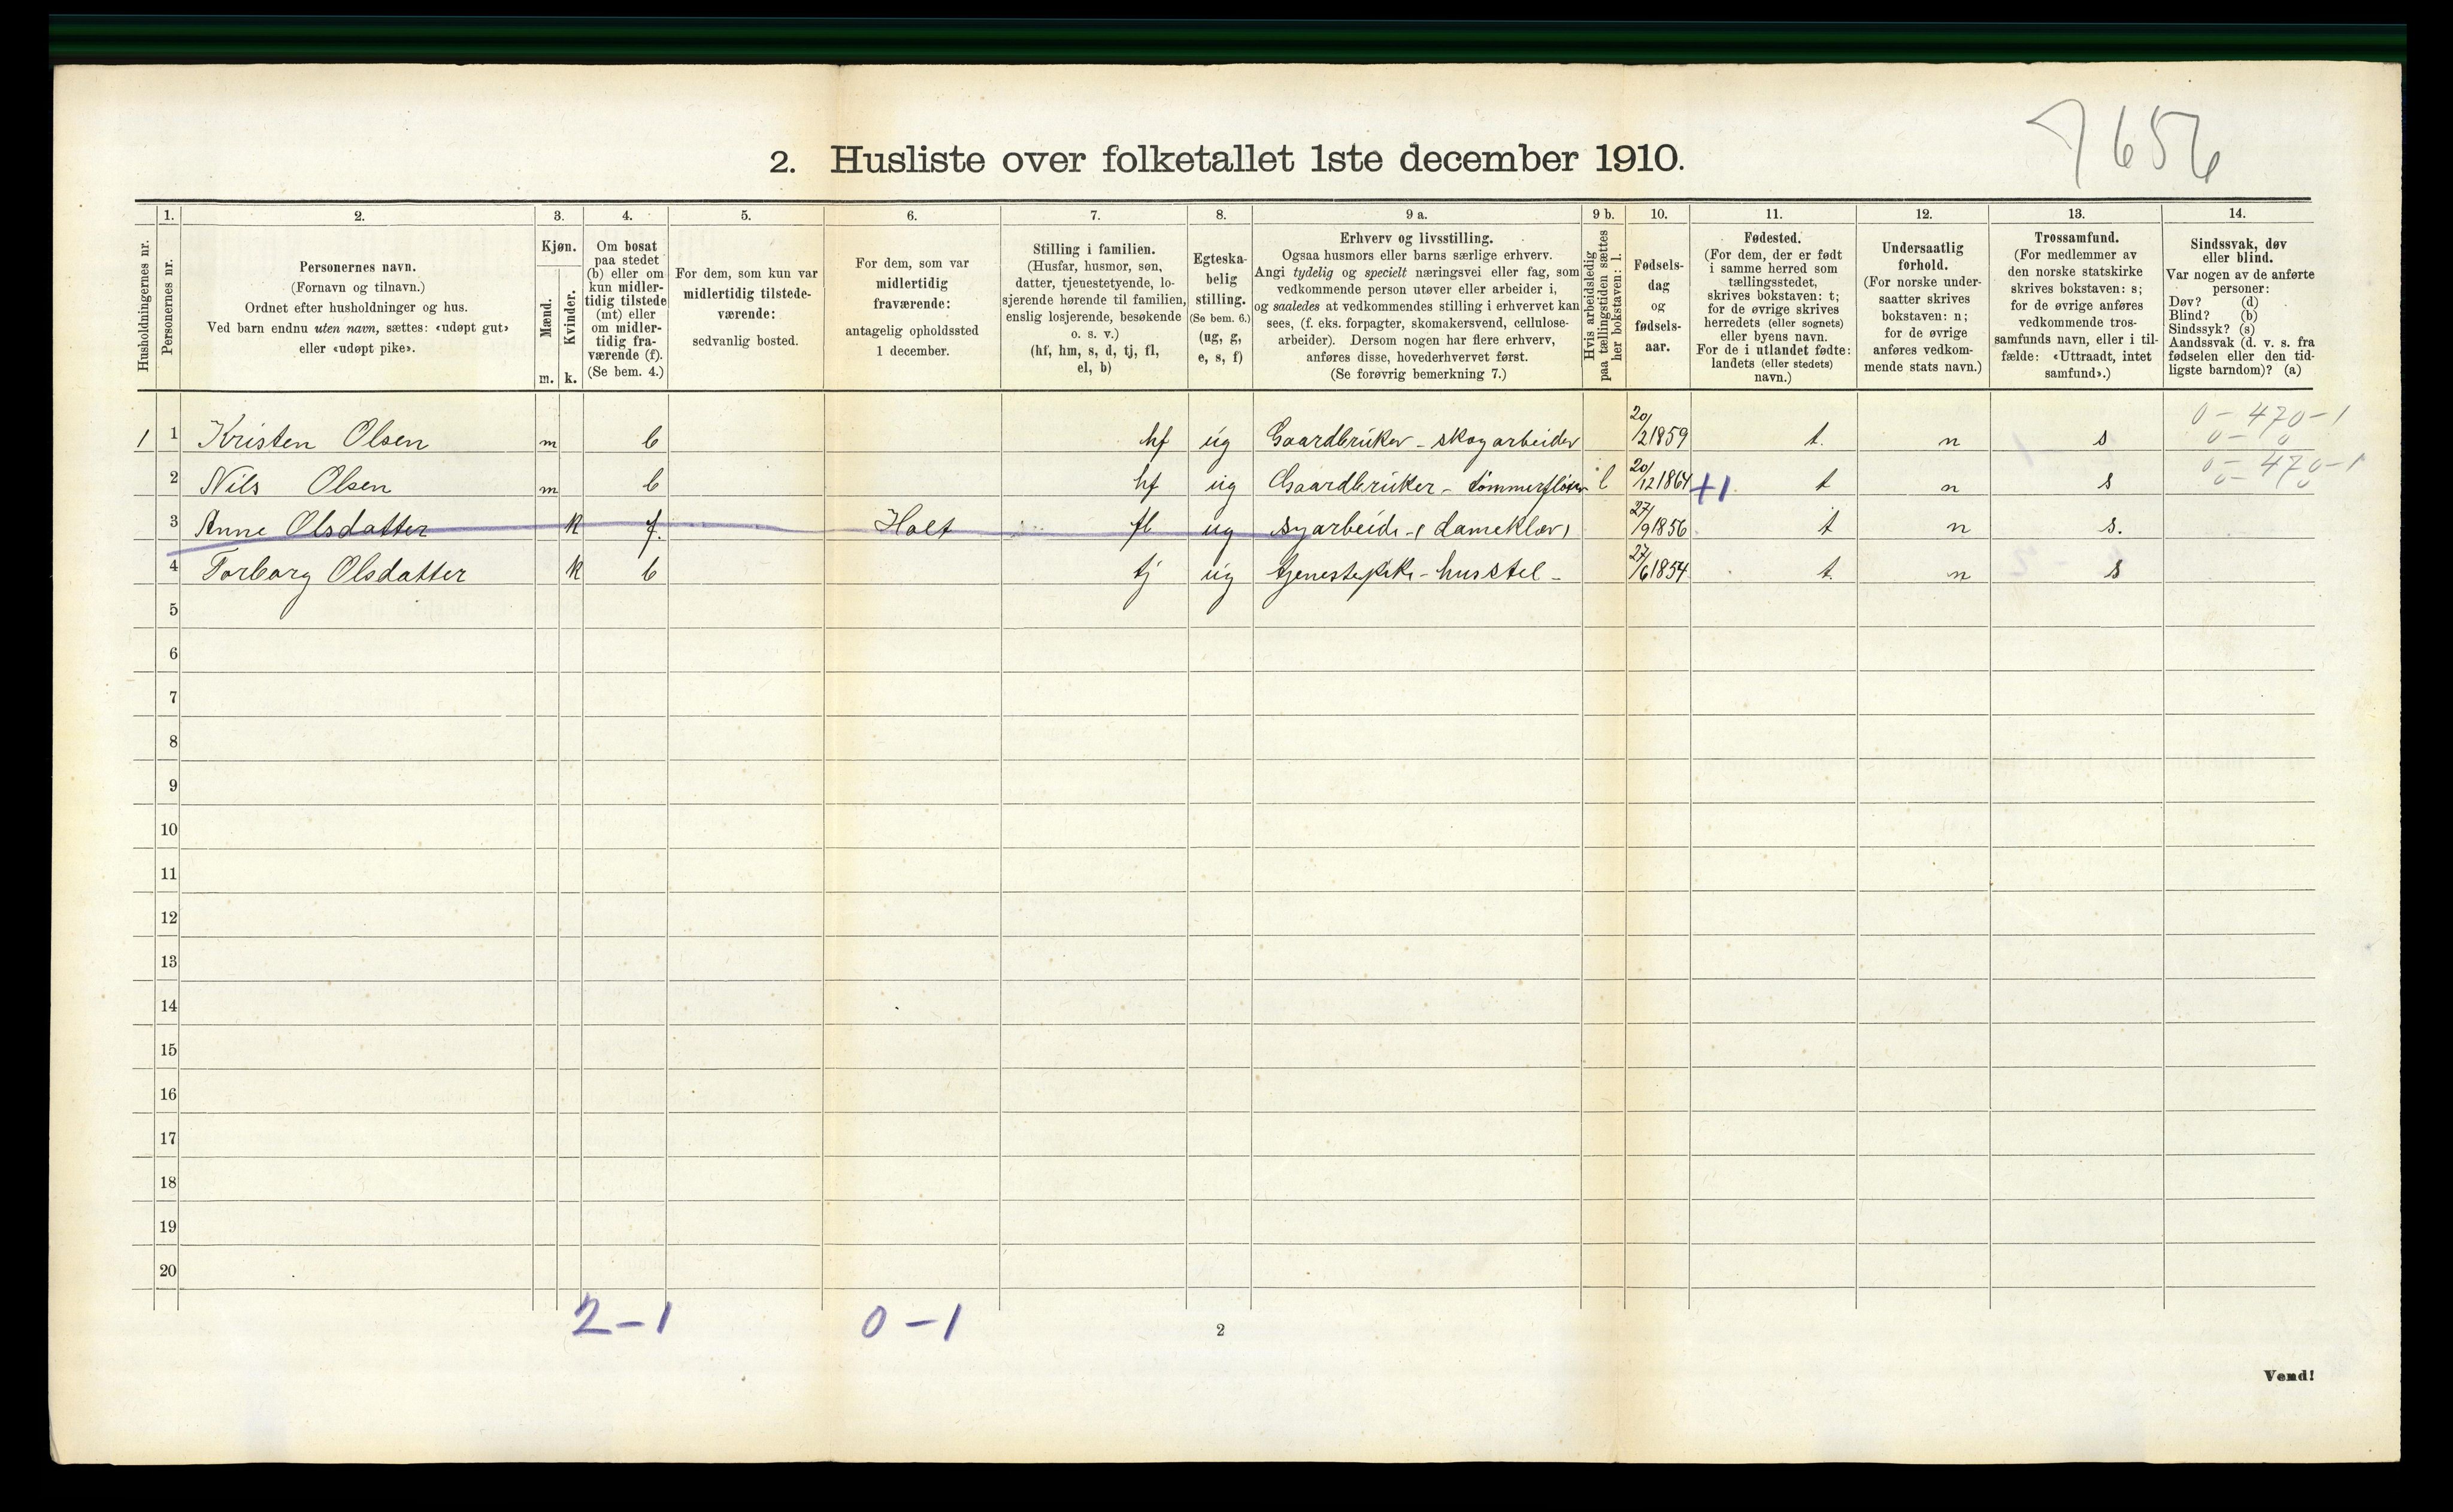 7656
2. Husliste over folketallet 1ste december 1910.
Husholdningernes nr.
1. Personernes nr.
2. Personernes navn.
(Fornavn og tilnavn.)
Ordnet efter husholdninger og hus.
Ved barn endnu uten navn, sættes: «udøpt gut»
eller «udøpt pike».
3. Kjøn.
Mænd. m.
Kvinder. k.
4. Om bosat
paa stedet
(b) eller om
kun midler-
tidig tilstede
(mt) eller
om midler-
tidig fra-
værende (f).
(Se bem. 4.)
5. For dem, som kun var
midlertidig tilstede-
værende:
sedvanlig bosted.
6. For dem, som var
midlertidig
fraværende:
antagelig opholdssted
1 december.
7. Stilling i familien.
(Husfar, husmor, søn,
datter, tjenestetyende, lo-
sjerende hørende til familien,
enslig losjerende, besøkende
o. s. v.)
(hf, hm, s, d, tj, fl,
el, b)
8. Egteska-
belig
stilling.
(Se bem. 6.)
(ug, g,
e, s, f)
9 a. Erhverv og livsstilling.
Ogsaa husmors eller barns særlige erhverv.
Angi tydelig og specielt næringsvei eller fag, som
vedkommende person utøver eller arbeider i,
og saaledes at vedkommendes stilling i erhvervet kan
sees, (f. eks. forpagter, skomakersvend, cellulose-
arbeider). Dersom nogen har flere erhverv,
anføres disse, hovederhvervet først.
(Se forøvrig bemerkning 7.)
9 b. Hvis arbeidsledig
paa tællingstiden sættes
her bokstaven: l.
10. Fødsels-
dag
og
fødsels-
aar.
11. Fødested.
(For dem, der er født
i samme herred som
tællingsstedet,
skrives bokstaven: t;
for de øvrige skrives
herredets (eller sognets)
eller byens navn.
For de i utlandet fødte:
landets (eller stedets)
navn.)
12. Undersaatlig
forhold.
(For norske under-
saatter skrives
bokstaven: n;
for de øvrige
anføres vedkom-
mende stats navn.)
13. Trossamfund.
(For medlemmer av
den norske statskirke
skrives bokstaven: s;
for de øvrige anføres
vedkommende tros-
samfunds navn, eller i til-
fælde: «Uttraadt, intet
samfund».)
14. Sindssvak, døv
eller blind.
Var nogen av de anførte
personer:
Døv? (d)
Blind? (b)
Sindssyk? (s)
Aandssvak (d. v. s. fra
fødselen eller den tid-
ligste barndom)? (a)
1 1 Kristen Olsen m b hf ug Gaardbruker - skogarbeider 20/2 1859 t. n s 0 - 470 - 1
0 - 0
2 Nils Olsen m b hf ug Gaardbruker - tømmerfløter l 20/12 1864 +1 t n s 0 - 470 - 1
0 - 0
3 Anne Olsdatter k f. Holt fl ug syarbeide - ( dameklær) 27/9 1856 t n s.
4 Torborg Olsdatter k b tj ug tjenestepike - husstel - 27/6 1854 t. n s
5
6
7
8
9
10
11
12
13
14
15
16
17
18
19
20
2 - 1 0 - 1
2
Vend!